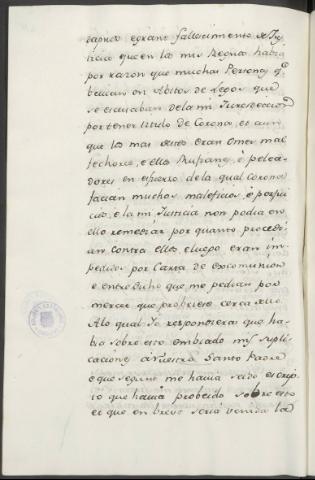 dapnos egrant fallescimento de Jus
ticia que en los mis Regnos habia
por razon que muchas Personas q.e
bevian en Abitos de Legos que
se escusaban de la mi Jurisdeccion
por tener titulo de Corona, et aun
que los mas destos eran omes mal
fechores, e ellos Rufianes, e pelea
dores en esfuerzo de la qual Corona
facian muchos maleficios, e perjui
cios, e la mi Justicia non podia en
ello remediar por quanto procedi
an contra ellos, e luego eran im
pedidos por Cartas de excomunion
e entredicho que me pedian por
merced que probeiese cerca dello
A lo qual Yo respondiera que ha
bia sobre esto embiado mis supli
caciones a nuestro Santo Padre
e que segunt me havia seido escrip
to que havia probeido sobre esto
et que en breve seria venida la